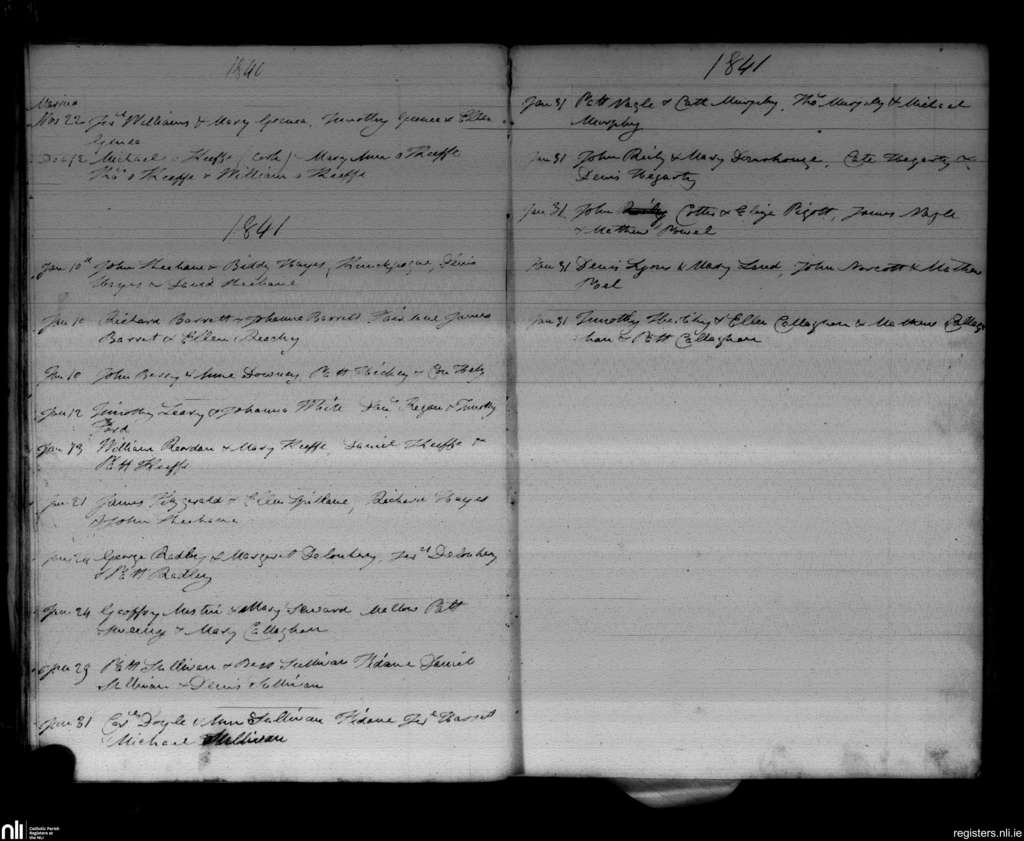 1840
Nov 22 Jas Williams & Mary Guinea, Timothy Guinea & Ellen
Guinea
Dec 12 Michael o Keeffe (Cork) Mary Anne o Keeffe
Thos o Keeffe & William o Keeffe
1841
Jan 10th John Sheehane & Biddy Hayes, Denis
Hayes & David Sheehane
Jan 10 Richard Barrett & Johanna Barrett James
Barret & Ellen
Jan 10 John Barry & Anne Downey Patt Hickey &
Jan 12 Timothy Leary & Johanna White Danl Regan & Timothy
Ford
Jan 13 William Reardan & Mary Keeffe, Daniel Keeffe &
Patt Keeffe
Jan 21 James Fitzgerald & Ellen Spillane, Richard Hayes
& John Sheehane
George Radley & Margaret Delouhery, Delouhery
& Patt Radley
Jan 24 Geoffry & Mary Mallow Patt
Sweeney & Mary Callaghan
Jan 29 Patt Sullivan & Bess Sullivan Daniel
Sullivan & Denis Sullivan
Jan 31 Doyle & Ann Sullivan
Michael Sullivan
1841
Jan 31 Patt Nagle & Cath Murphy, Thos Murphy & Michael
Murphy
Jan 31 John Reily & Mary Cate Hegarty &
Denis Hegarty
Jan 31 John Cotter & Eliza Pigott, James Nagle
& Mathew Powel
Jan 31 Denis Lyons & Mary Land, John Norcott & Mathew
Poel
Jan 31 Timothy & Ellen Callaghan & Mathew Callag
han & Patt Callaghan
nli Catholic Parish
Registers at
the NLI
registers.nli.ie